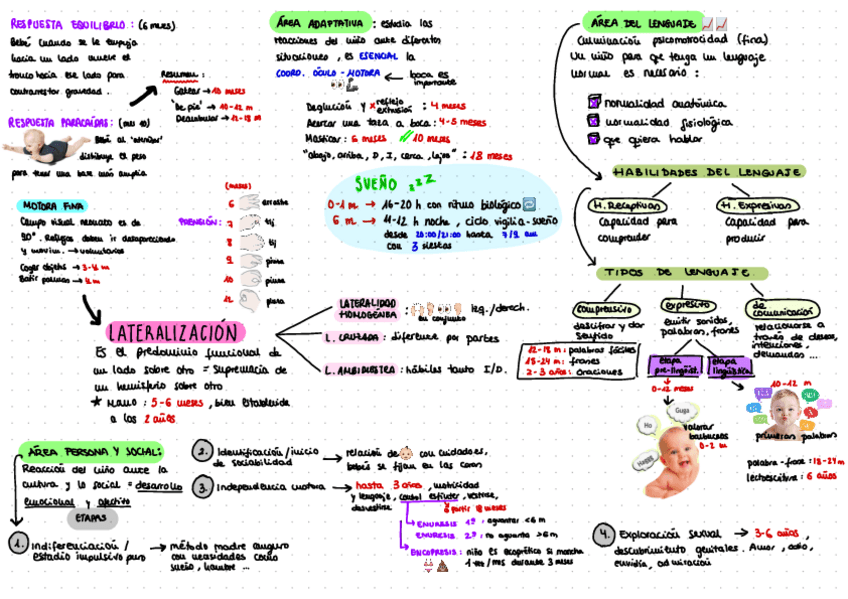 RESPUESTA EQUILIBRIO : (6 meses)
Bebé cuando se le empuja
hacia un lado mueve el
tronco hacia ese lado para
contrarrestar gravedad.
Resumen:
Gatear → 10 meses
"De pie" → 10-12 m
Deambular → 12-18 m
RESPUESTA PARACAÍDAS:
Bebé al "aterrizar"
distribuye el peso
para tener una base más amplia
MOTORA FINA
Campo visual neonato es de
90°. Reflejos deben ir desapareciendo
y movim. → voluntarios
Coger objetos → 3-4 m
PRENSIÓN:
(meses)
6
7
8
9 pinza
10 pinza
12 pinza
ÁREA ADAPTATIVA : estudia las
reacciones del niño ante diferentes
situaciones, es ESENCIAL la
COORD. ÓCULO-MOTORA ← boca es
importante
Deglución y x reflejo
extrusión : 4 meses
Acercar una taza a boca: 4-5 meses
Masticar: 6 meses // 10 meses
"abajo, arriba, D, I, cerca, lejos" : 18 meses
SUEÑO zzZ
0-1 m → 16-20 h con ritmo biológico
6 m → 11-12 h noche, ciclo vigilia-sueño
desde 20:00/21:00 hasta 7/8 am
con 3 siestas
LATERALIZACIÓN
Es el predominio funcional de
un lado sobre otro = supremacía de
un hemisferio sobre otro
★ MANO: 5-6 meses, bien establecida
a los 2 años
LATERALIDAD
HOMOGÉNEA : en conjunto izq./derech.
L. CRUZADA: diferente por partes
L. AMBIDIESTRA: hábiles tanto I/D.
ÁREA DEL LENGUAJE
Culminación psicomotricidad (fina)
Un niño para que tenga un lenguaje
normal es necesario:
normalidad anatómica
normalidad fisiológica
que quiera hablar
HABILIDADES DEL LENGUAJE
H. Receptivas
Capacidad para
comprender
H. Expresivas
Capacidad para
producir
TIPOS DE LENGUAJE
comprensivo
descifrar y dar
sentido
expresivo
emitir sonidos,
palabras, frases
de
comunicación
relacionarse a
través de deseos,
intenciones,
demandas ...
12-18 m: palabras fáciles
18-24 m: frases
2-3 años: oraciones
etapa
pre-lingüíst.
0-12 meses
etapa
lingüística
10-12 m
primeras palabras
Ho
Guga
valorar
balbuceos
0-2 m
palabra-frase: 18-24m
lectoescritura: 6 años
ÁREA PERSONA Y SOCIAL:
Reacción del niño ante la
cultura y lo social = desarrollo
emocional y afectivo
ETAPAS
1. Indiferenciación /
estadio impulsivo puro → método madre canguro
con necesidades como
sueño, hambre ...
2. Identificación / inicio
de sociabilidad → relación de con cuidadores,
bebés se fijan en las caras
3. Independencia motora → hasta 3 años, motricidad
y lenguaje, control esfínter, vestirse,
desvestirse
a partir 18 meses
ENURESIS 1ª: aguantar <6m
ENURESIS 2ª: no aguanta >6m
ENCOPRESIS: niño es encoprético si mancha
1 vez/mes durante 3 meses
4. Exploración sexual → 3-6 años,
descubrimiento genitales. Amor, odio,
envidia, admiración